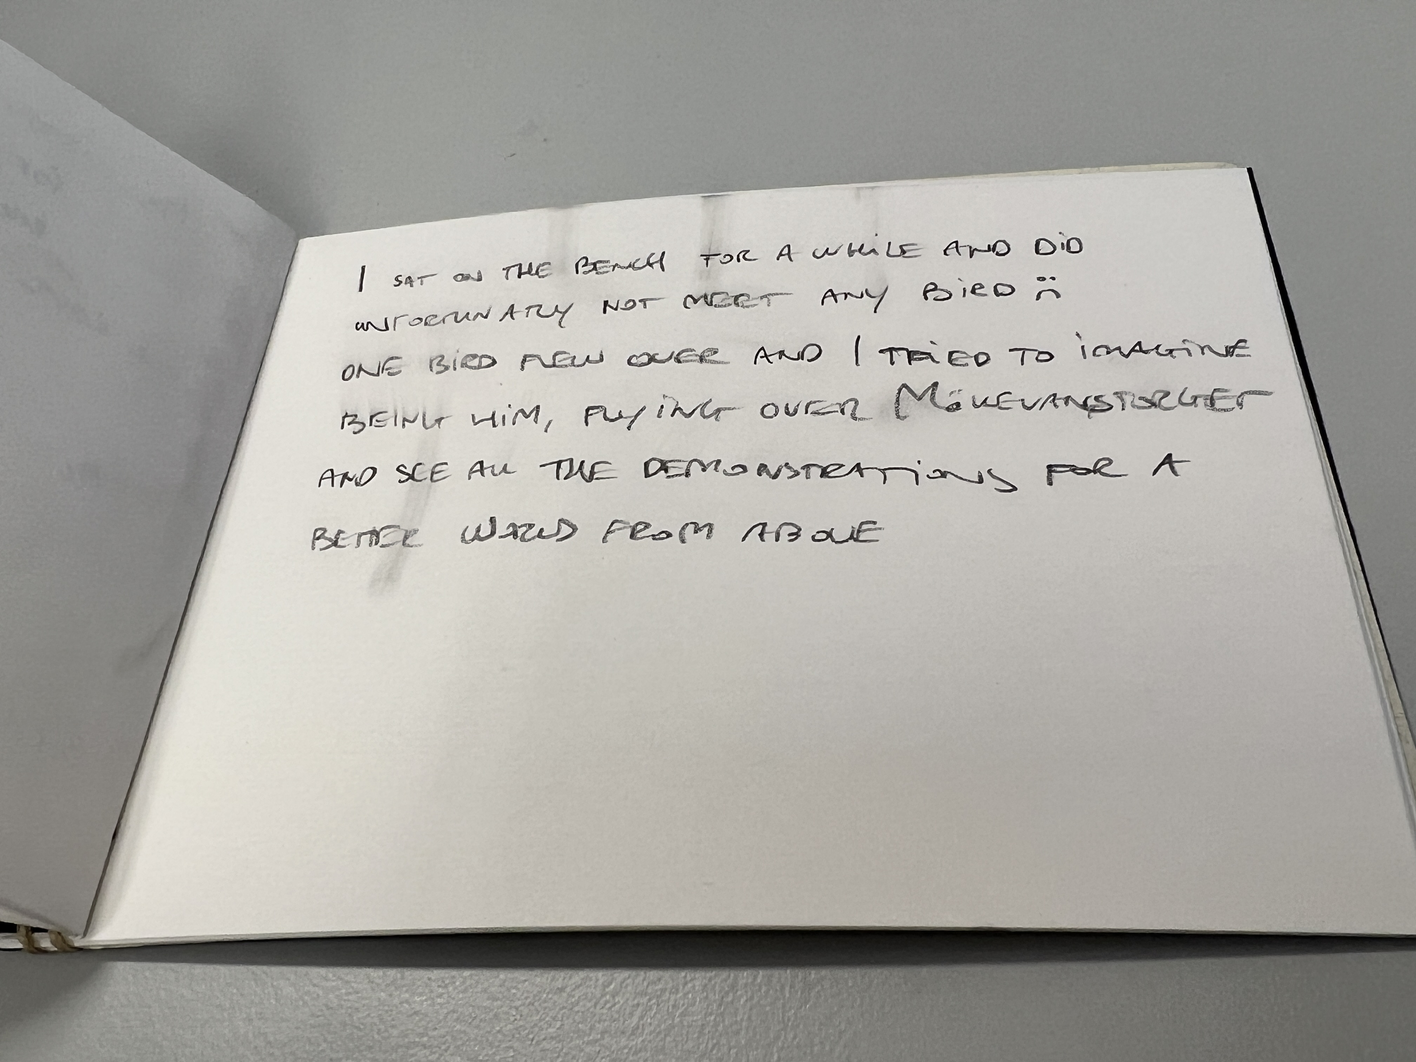 I SAT ON THE BENCH FOR A WHILE AND DID
UNFORTUNATLY NOT MEET ANY BIRD ☹
ONE BIRD FLEW OVER AND I TRIED TO IMAGINE
BEING HIM, FLYING OVER MÖLLEVÅNGSTORGET
AND SEE ALL THE DEMONSTRATIONS FOR A
BETTER WORLD FROM ABOVE